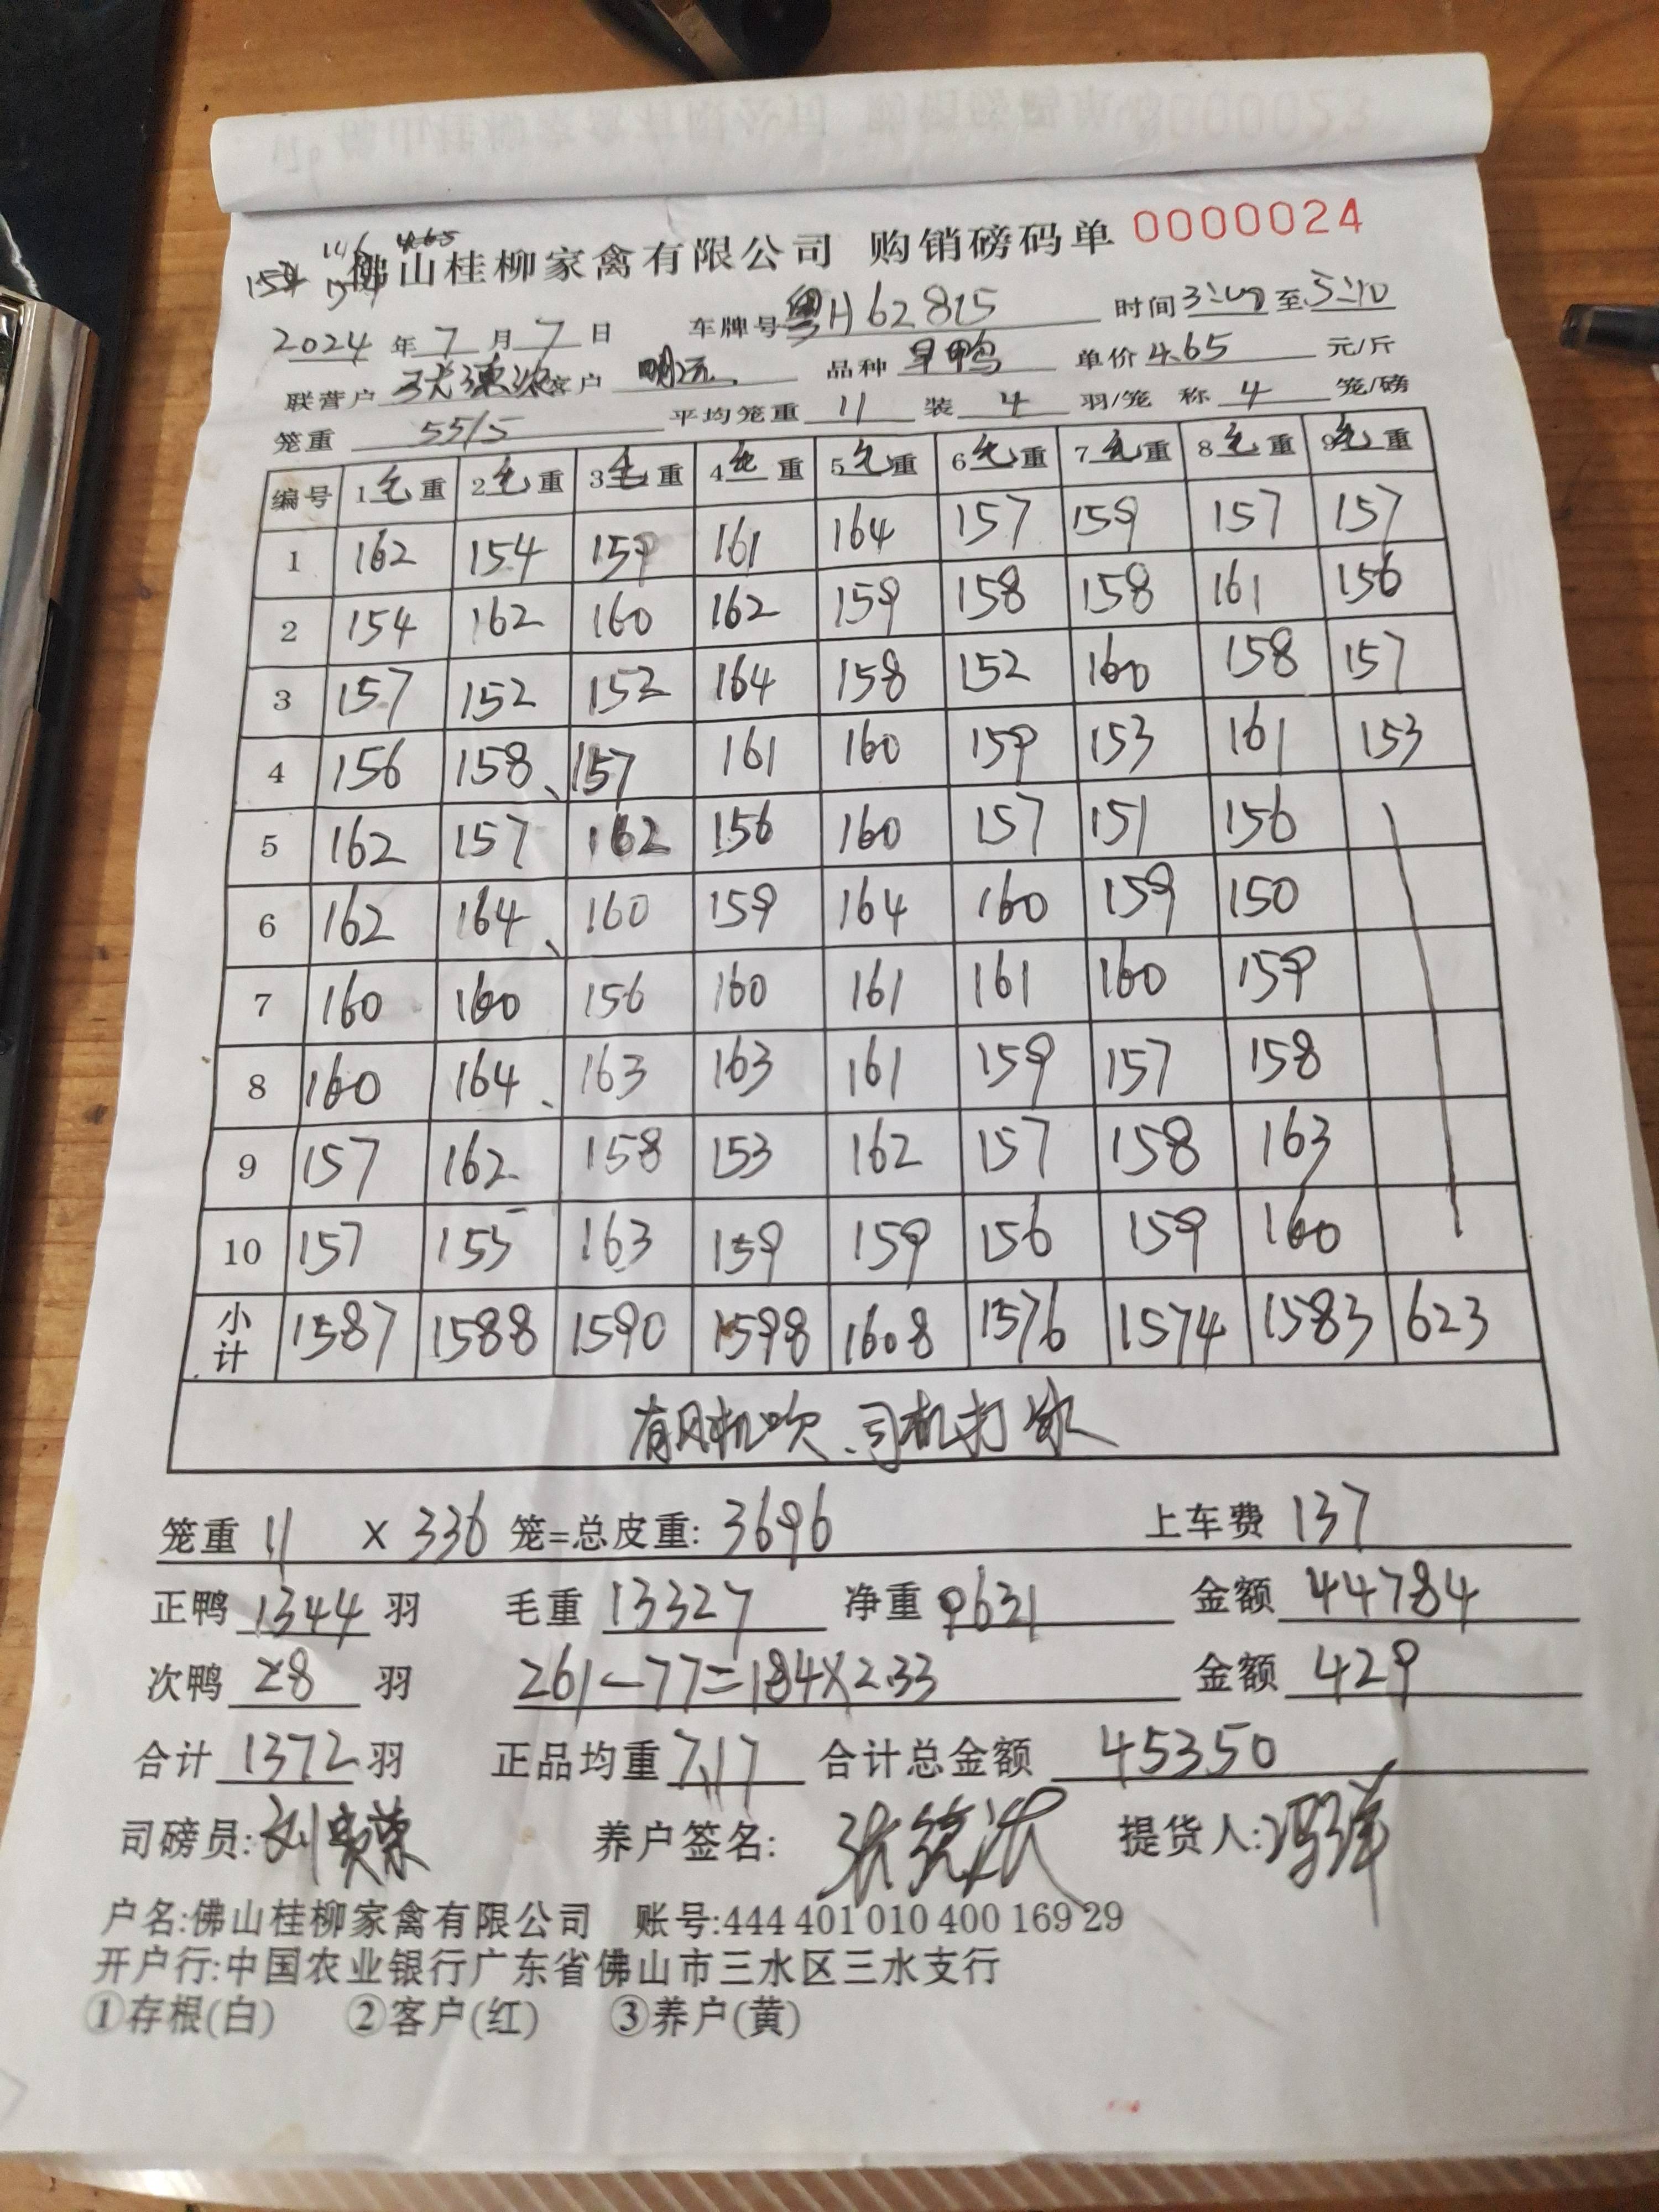 佛山桂柳家禽有限公司 购销磅码单 0000024
2024年7月7日 车牌号粤H62815 时间 至5:10
联营户 客户 明远 品种 旱鸭 单价4.65元/斤
笼重 55/5 平均笼重 11 装 4 羽/笼 称 4 笼/磅
编号 1毛重 2毛重 3毛重 4毛重 5毛重 6毛重 7毛重 8毛重 9毛重
1 162 154 159 161 164 157 159 157 157
2 154 162 160 162 159 158 158 161 156
3 157 152 152 164 158 152 160 158 157
4 156 158 157 161 160 159 153 161 153
5 162 157 162 156 160 157 151 156
6 162 164 160 159 164 160 159 150
7 160 160 156 160 161 161 160 159
8 160 164 163 163 161 159 157 158
9 157 162 158 153 162 157 158 163
10 157 155 163 159 159 156 159 160
小计 1587 1588 1590 1598 1608 1576 1574 1583 623
有风机吹、司机打水
笼重 11 × 336 笼=总皮重: 3696 上车费 137
正鸭 1344 羽 毛重 13327 净重 9631 金额 44784
次鸭 28 羽 261-77=184×2.33 金额 429
合计 1372 羽 正品均重 7.17 合计总金额 45350
司磅员: 养户签名: 提货人:
户名:佛山桂柳家禽有限公司 账号:444 401 010 400 169 29
开户行:中国农业银行广东省佛山市三水区三水支行
①存根(白) ②客户(红) ③养户(黄)